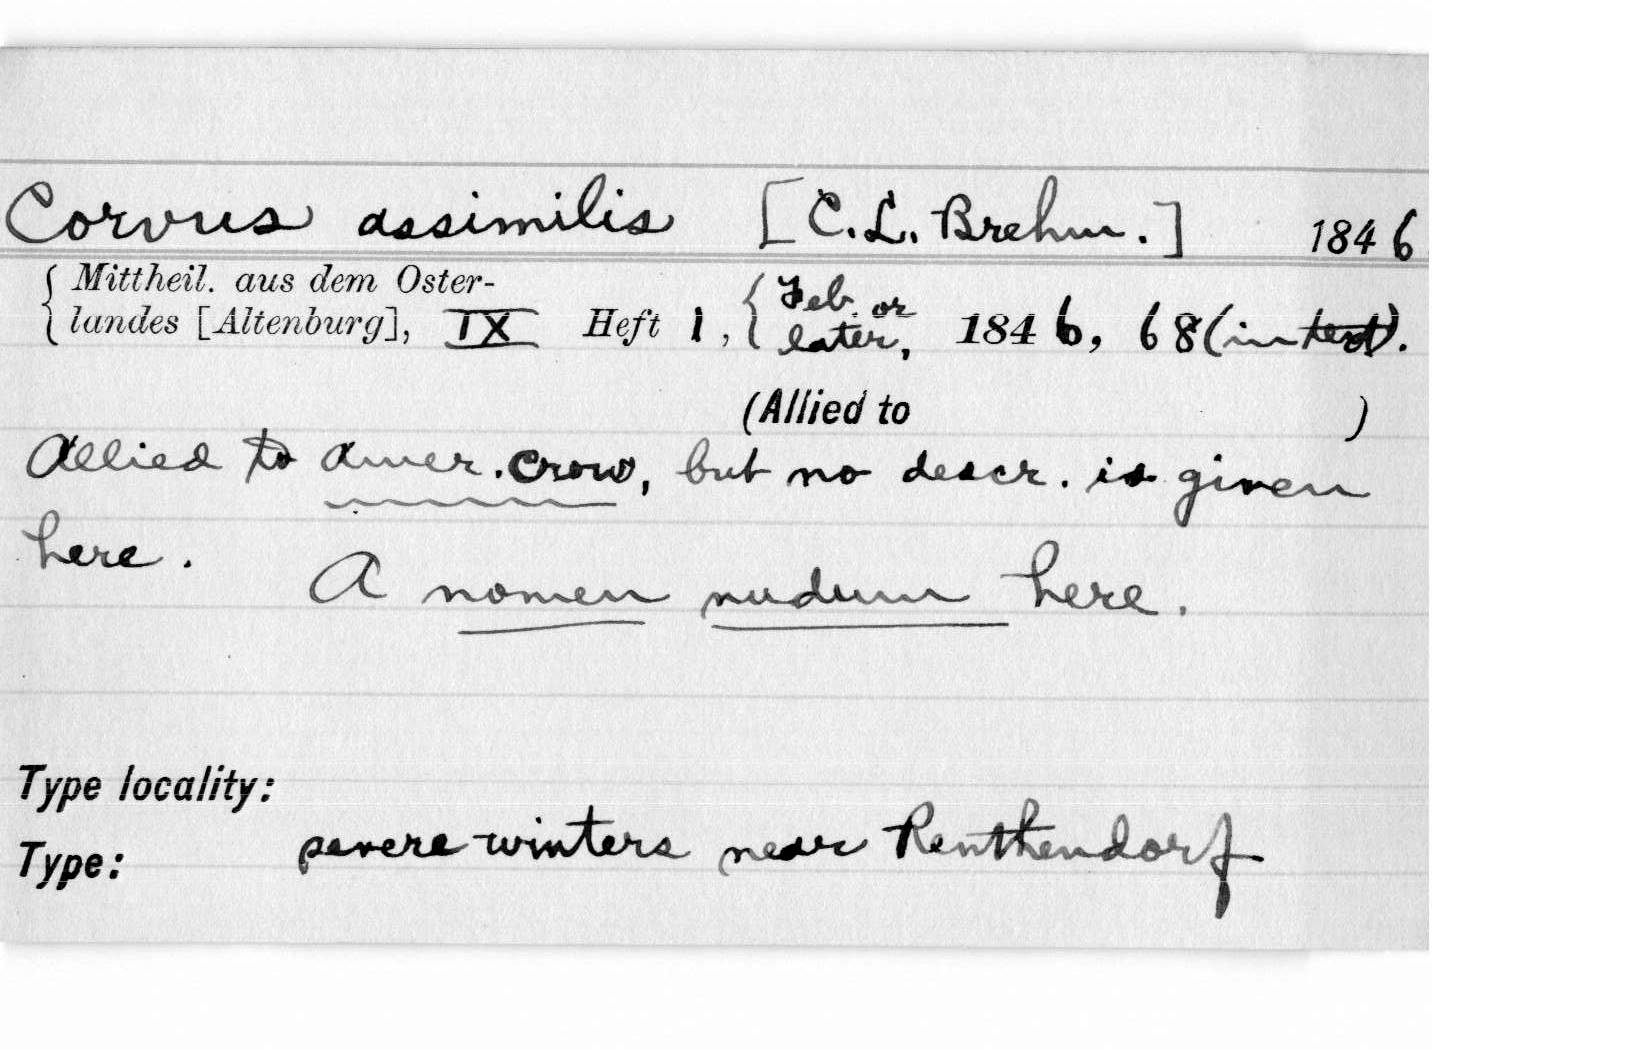 Corvus assimilis [C.L. Brehm.] 1846
Mittheil. aus dem Oster-
landes [Altenburg], IX Heft 1, Feb. or later, 1846, 68 (in text).
(Allied to )
Allied to Amer. crow, but no descr. is given
here.
A nomen nudum here.
Type locality:
severe winters near Renthendorf
Type: